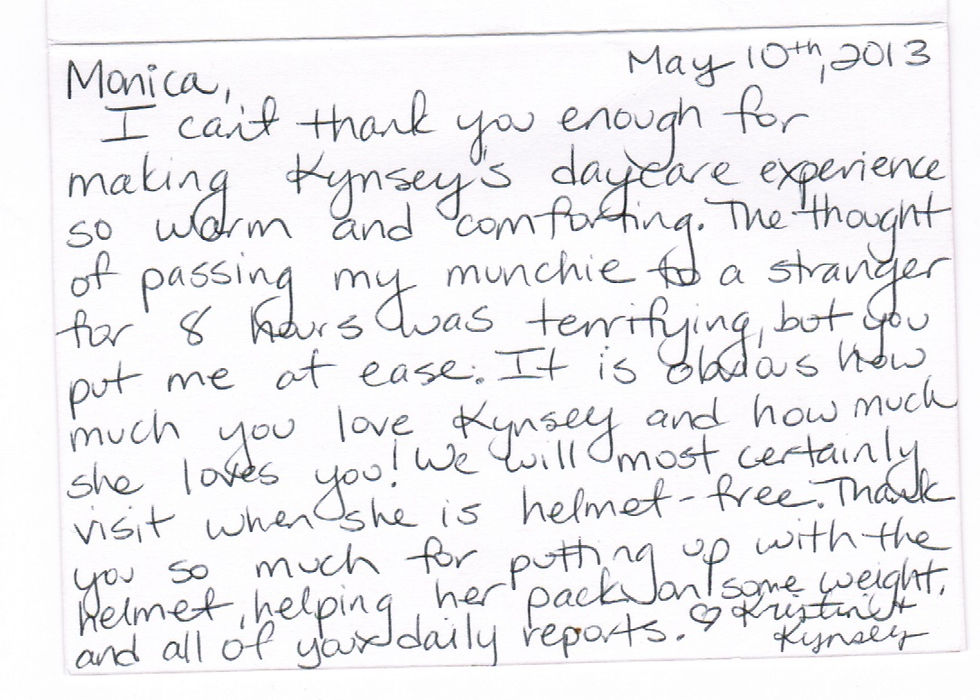 May 10th, 2013
Monica,
I can't thank you enough for
making Kynsey's daycare experience
so warm and comforting. The thought
of passing my munchie to a stranger
for 8 hours was terrifying, but you
put me at ease. It is obvious how
much you love Kynsey and how much
she loves you! We will most certainly
visit when she is helmet-free. Thank
you so much for putting up with the
helmet, helping her pack on some weight,
and all of your daily reports. ♡ Kristin &
Kynsey